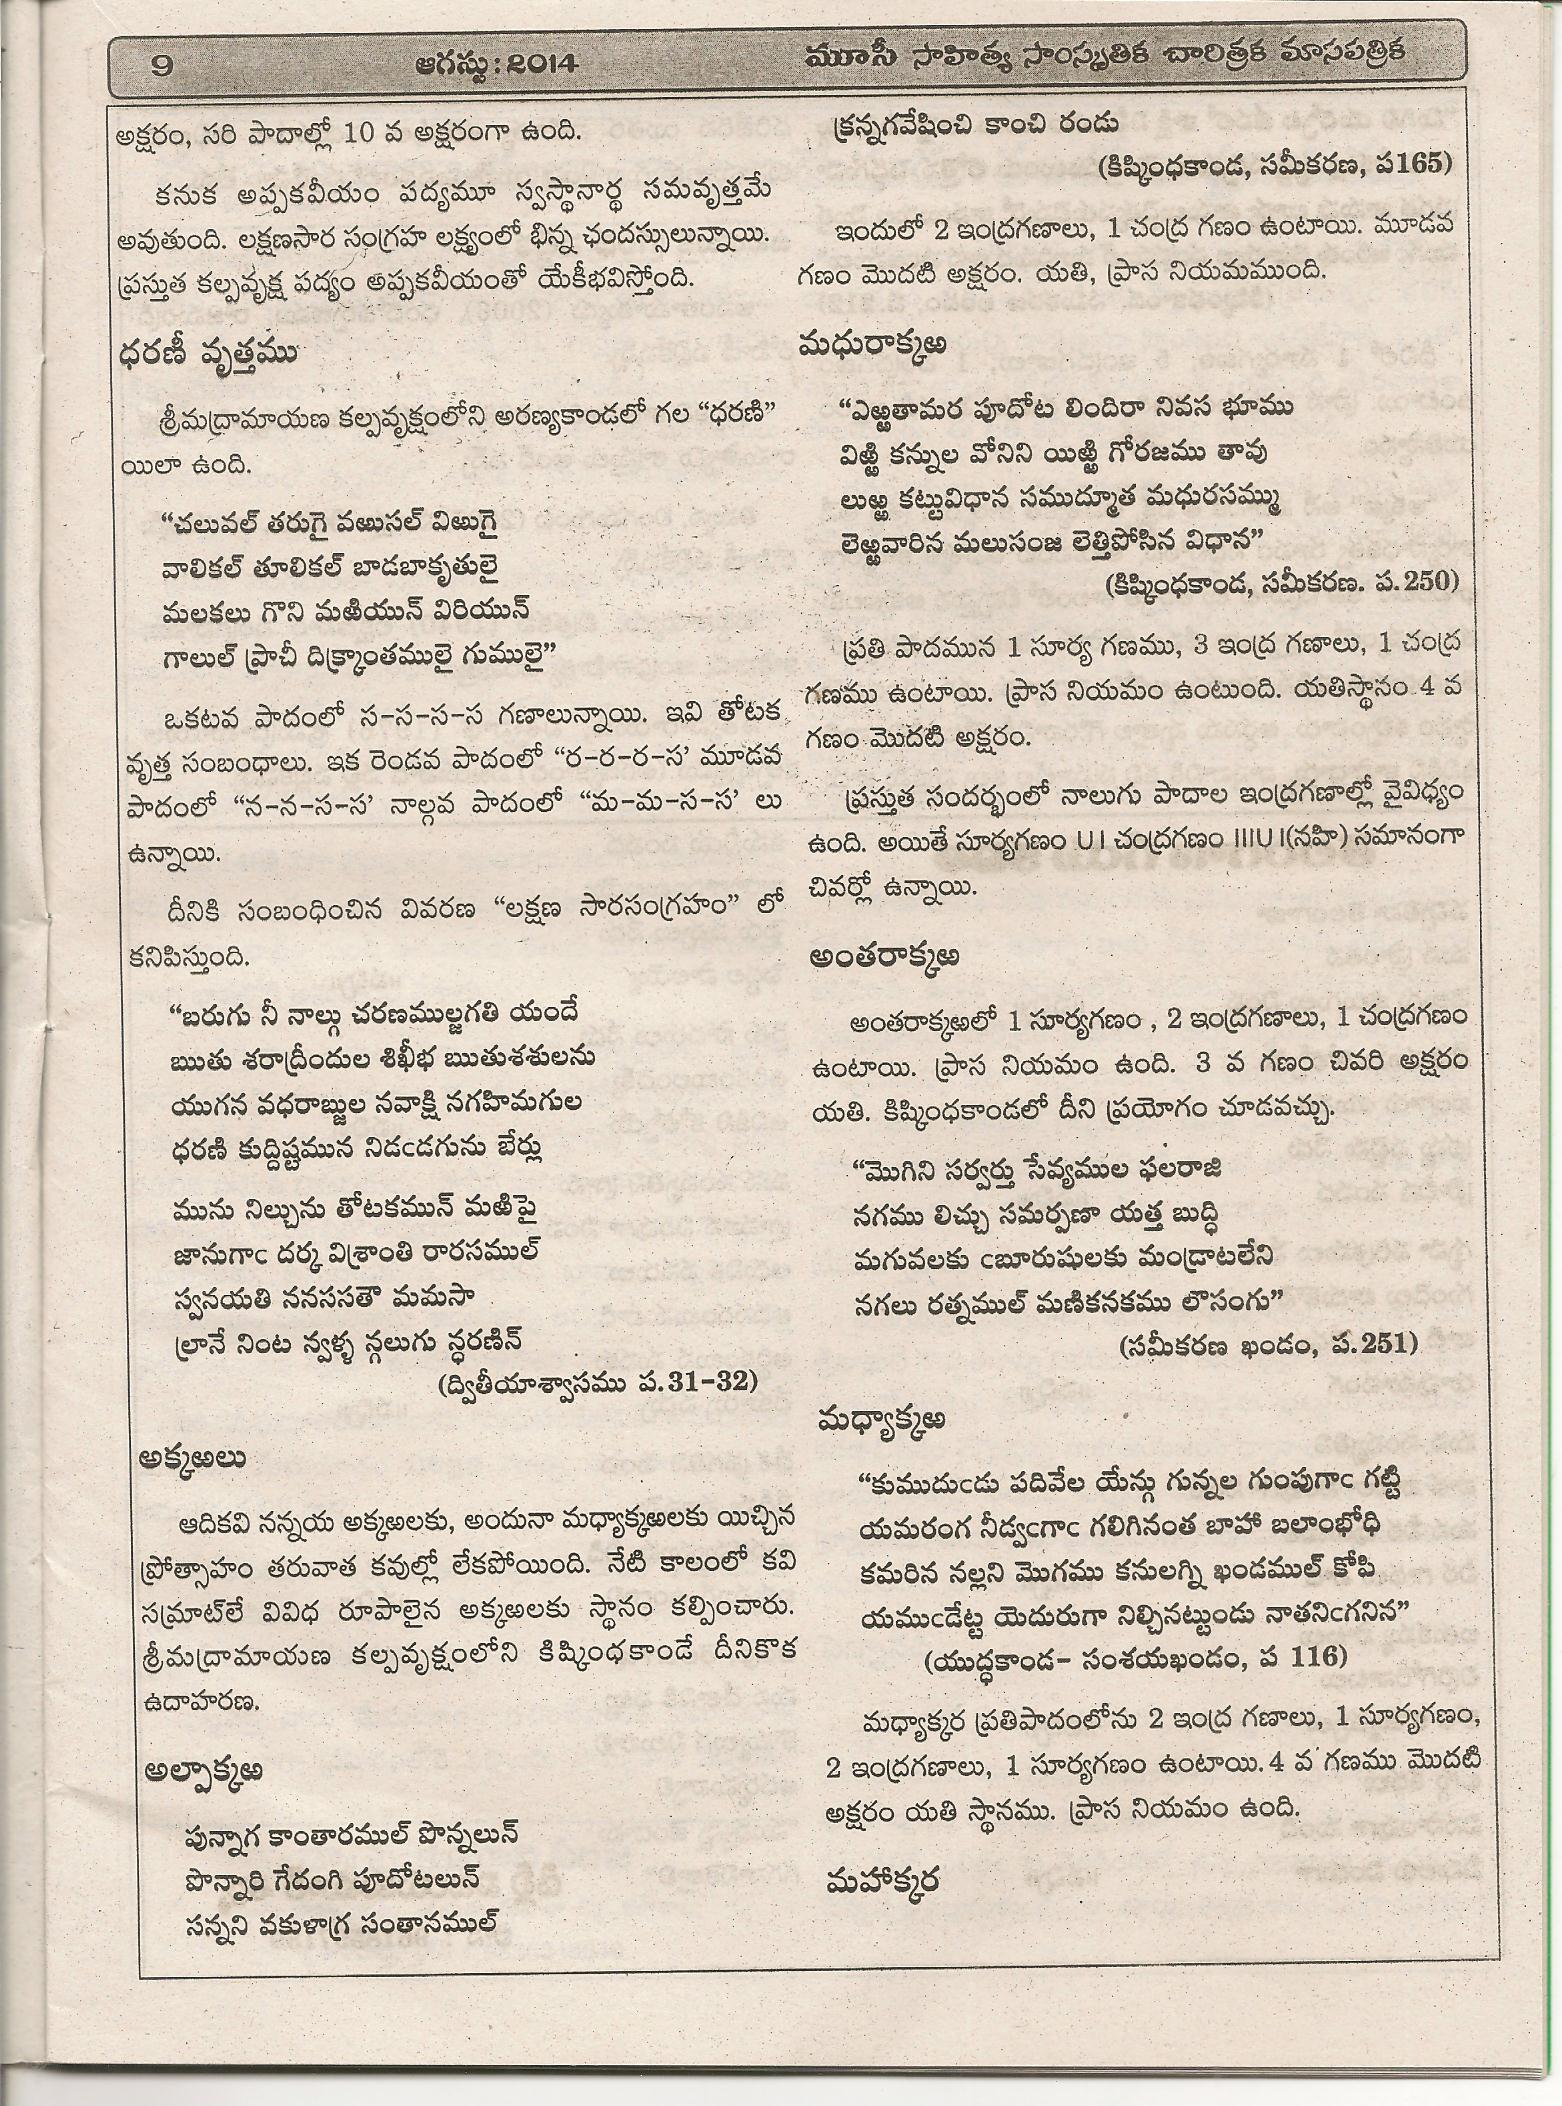 9 ఆగస్టు:2014 మూసీ సాహిత్య సాంస్కృతిక చారిత్రక మాసపత్రిక
అక్షరం, సరి పాదాల్లో 10 వ అక్షరంగా ఉంది.
కనుక అప్పకవీయం పద్యమూ స్వస్థానార్థ సమవృత్తమే
అవుతుంది. లక్షణసార సంగ్రహ లక్ష్యంలో భిన్న ఛందస్సులున్నాయి.
ప్రస్తుత కల్పవృక్ష పద్యం అప్పకవీయంతో యేకీభవిస్తోంది.
ధరణీ వృత్తము
శ్రీమద్రామాయణ కల్పవృక్షంలోని అరణ్యకాండలో గల “ధరణి”
యిలా ఉంది.
“చలువల్ తరుగై వఱుసల్ విఱుగై
వాలికల్ తూలికల్ బాడబాకృతులై
మలకలు గొని మఱియున్ విరియున్
గాలుల్ ప్రాచీ దిక్క్రాంతములై గుములై”
ఒకటవ పాదంలో స-స-స-స గణాలున్నాయి. ఇవి తోటక
వృత్త సంబంధాలు. ఇక రెండవ పాదంలో “ర-ర-ర-స’ మూడవ
పాదంలో “న-న-స-స’ నాల్గవ పాదంలో “మ-మ-స-స’ లు
ఉన్నాయి.
దీనికి సంబంధించిన వివరణ “లక్షణ సారసంగ్రహం” లో
కనిపిస్తుంది.
“బరుగు నీ నాల్గు చరణముల్జగతి యందే
ఋతు శరాద్రీందుల శిఖీభ ఋతుశశులను
యుగన వధరాబ్జుల నవాక్షి నగహిమగుల
ధరణి కుద్దిష్టమున నిడఁడగును బేర్లు
మును నిల్చును తోటకమున్ మఱిపై
జానుగాఁ దర్క విశ్రాంతి రారసముల్
స్వనయతి ననససతౌ మమసా
ల్రానే నింట న్వళ్ళ న్గలుగు న్ధరణిన్
(ద్వితీయాశ్వాసము ప.31-32)
అక్కఱలు
ఆదికవి నన్నయ అక్కఱలకు, అందునా మధ్యాక్కఱలకు యిచ్చిన
ప్రోత్సాహం తరువాత కవుల్లో లేకపోయింది. నేటి కాలంలో కవి
సమ్రాట్‌లే వివిధ రూపాలైన అక్కఱలకు స్థానం కల్పించారు.
శ్రీమద్రామాయణ కల్పవృక్షంలోని కిష్కింధకాండే దీనికొక
ఉదాహరణ.
అల్పాక్కఱ
పున్నాగ కాంతారముల్ పొన్నలున్
పొన్నారి గేదంగి పూదోటలున్
సన్నని వకుళాగ్ర సంతానముల్
క్రన్నగవేషించి కాంచి రండు
(కిష్కింధకాండ, సమీకరణ, ప165)
ఇందులో 2 ఇంద్రగణాలు, 1 చంద్ర గణం ఉంటాయి. మూడవ
గణం మొదటి అక్షరం. యతి, ప్రాస నియమముంది.
మధురాక్కఱ
“ఎఱ్ఱతామర పూదోట లిందిరా నివస భూము
విఱ్ఱి కన్నుల వోనిని యిఱ్ఱి గోరజము తావు
లుఱ్ఱ కట్టువిధాన సముద్భూత మధురసమ్ము
లెఱ్ఱవారిన మలుసంజ లెత్తిపోసిన విధాన”
(కిష్కింధకాండ, సమీకరణ. ప.250)
ప్రతి పాదమున 1 సూర్య గణము, 3 ఇంద్ర గణాలు, 1 చంద్ర
గణము ఉంటాయి. ప్రాస నియమం ఉంటుంది. యతిస్థానం 4 వ
గణం మొదటి అక్షరం.
ప్రస్తుత సందర్భంలో నాలుగు పాదాల ఇంద్రగణాల్లో వైవిధ్యం
ఉంది. అయితే సూర్యగణం U I చంద్రగణం IIIU I(నహ) సమానంగా
చివర్లో ఉన్నాయి.
అంతరాక్కఱ
అంతరాక్కఱలో 1 సూర్యగణం , 2 ఇంద్రగణాలు, 1 చంద్రగణం
ఉంటాయి. ప్రాస నియమం ఉంది. 3 వ గణం చివరి అక్షరం
యతి. కిష్కింధకాండలో దీని ప్రయోగం చూడవచ్చు.
“మొగిని సర్వర్తు సేవ్యముల ఫలరాజి
నగము లిచ్చు సమర్పణా యత్త బుద్ధి
మగువలకు ఁబూరుషులకు మండ్రాటలేని
నగలు రత్నముల్ మణికనకము లొసంగు”
(సమీకరణ ఖండం, ప.251)
మధ్యాక్కఱ
“కుముదుఁడు పదివేల యేన్గు గున్నల గుంపుగాఁ గట్టి
యమరంగ నీడ్వఁగాఁ గలిగినంత బాహా బలాంభోధి
కమరిన నల్లని మొగము కనులగ్ని ఖండముల్ కోపి
యముఁడేట్ట యెదురుగా నిల్చినట్టుండు నాతనిఁగనిన”
(యుద్ధకాండ- సంశయఖండం, ప 116)
మధ్యాక్కర ప్రతిపాదంలోను 2 ఇంద్ర గణాలు, 1 సూర్యగణం,
2 ఇంద్రగణాలు, 1 సూర్యగణం ఉంటాయి. 4 వ గణము మొదటి
అక్షరం యతి స్థానము. ప్రాస నియమం ఉంది.
మహాక్కర